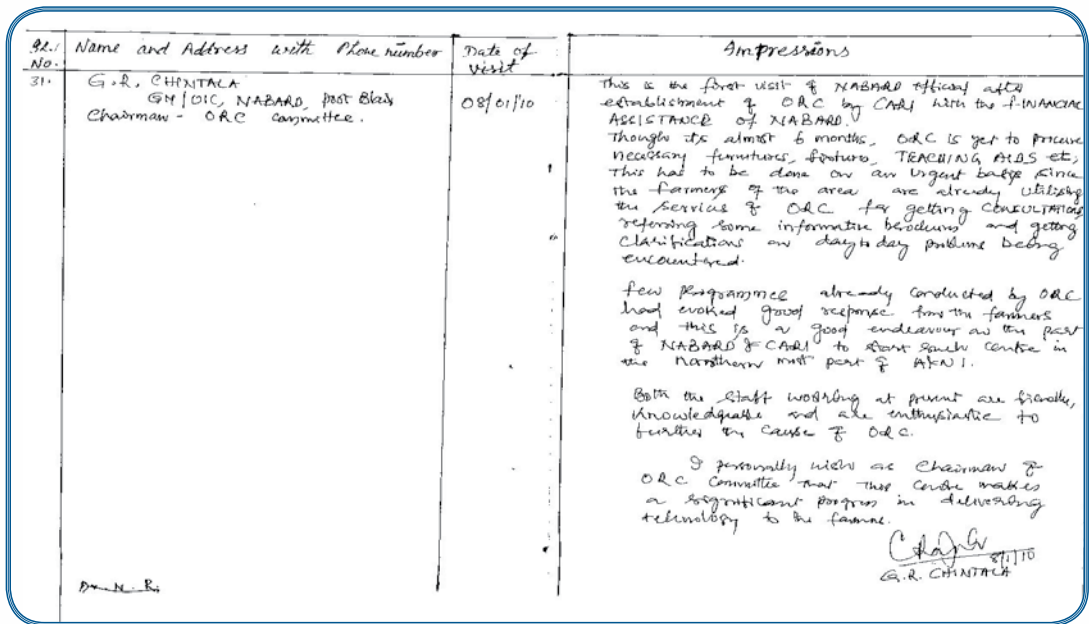 Sl. Name and Address with Phone number Date of Impressions
No. visit
31. G.R. CHINTALA
GM/OIC, NABARD, Port Blair 08/01/10
Chairman - ORC Committee.
This is the first visit of NABARD official after
establishment of ORC by CARI with the FINANCIAL
ASSISTANCE of NABARD.
Though its almost 6 months, ORC is yet to procure
necessary furnitures, fixtures, TEACHING AIDS etc,
This has to be done on an urgent basis since
the farmers of the area are already utilising
the services of ORC for getting CONSULTATIONS
referring some informative brochures and getting
clarifications on day to day problems being
encountered.
few programmes already conducted by ORC
had evoked good response from the farmers
and this is a good endeavour on the part
of NABARD & CARI to start such centre in
the Northern most part of A&N I.
Both the staff working at present are friendly,
knowledgeable and are enthusiastic to
further the cause of ORC.
I personally wish as Chairman of
ORC Committee that this centre makes
a significant progress in delivering
technology to the farmers.
8/1/10
G.R. CHINTALA
Dr. N. R.